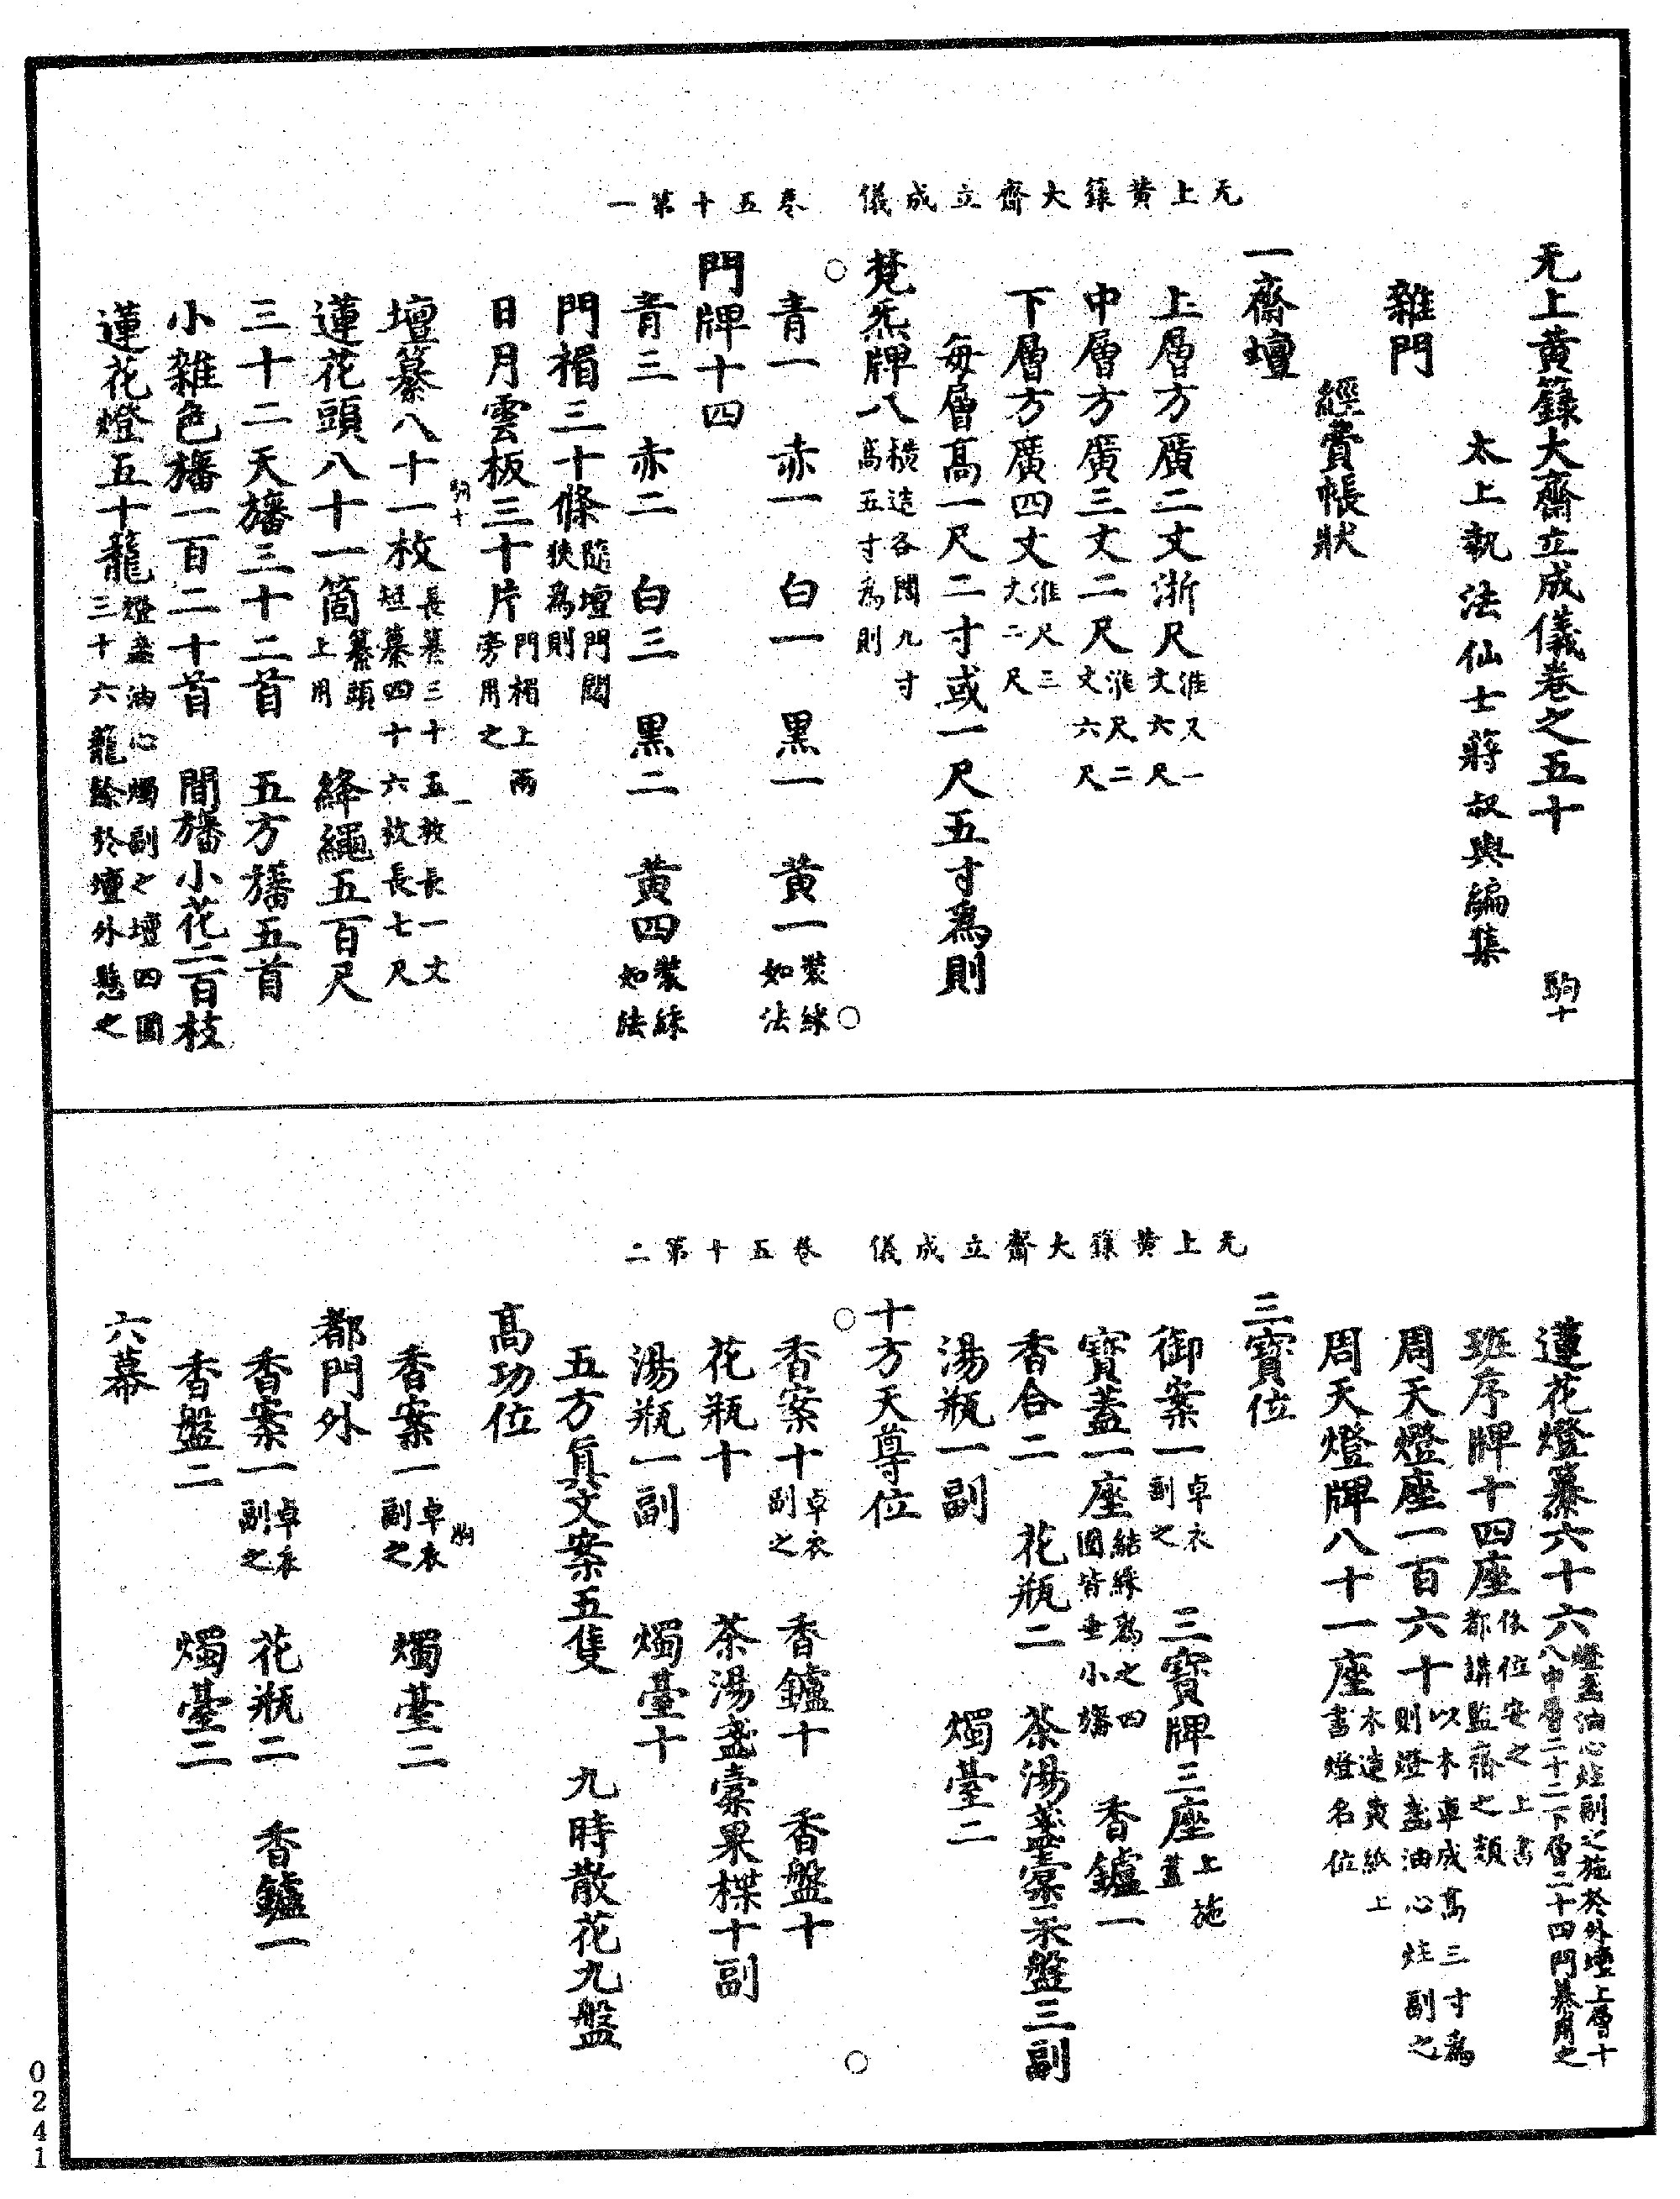 无上黃籙大齋立成儀 卷五十第一
无上黃籙大齋立成儀卷之五十 駒十
太上執法仙士蔣叔輿編集
雜門
經費帳狀
一齋壇
上層方廣二丈浙尺淮尺一丈六尺
中層方廣三丈二尺淮尺二丈六尺
下層方廣四丈淮尺三丈二尺
每層高一尺二寸或一尺五寸為則
梵炁牌八橫造各闊九寸高五寸為則
青一 赤一 白一 黑一 黃一裝綵如法
門牌十四
青三 赤二 白三 黑二 黃四裝綵如法
門楣三十條隨壇門闊狹為則
日月雲板三十片門楣上兩旁用之
壇纂八十一枚長纂三十五枚長一丈一短纂四十六枚長七尺
駒十
蓮花頭八十一箇纂頭上用 絳繩五百尺
三十二天旛三十二首 五方旛五首
小雜色旛一百二十首 間旛小花二百枝
蓮花燈五十籠燈盞油心燭副之壇四圍三十六籠餘於壇外懸之
无上黃籙大齋立成儀 卷五十第二
蓮花燈纂六十六燈盞油心炷副之施於外壇上層十八中層二十二下層二十四門纂用之
班序牌十四座依位安之上書都講監齋之類
周天燈座一百六十以木車成高三寸為則燈盞油心炷副之
周天燈牌八十一座木造黃紙上書燈名位
三寶位
御案一卓衣副之 三寶牌三座上施蓋
寶蓋一座結綵為之四圍皆垂小旛 香鑪一
香合二 花瓶二 茶湯盞橐朵盤三副
湯瓶一副 燭臺二
十方天尊位
香案十卓衣副之 香鑪十 香盤十
花瓶十 茶湯盞橐果楪十副
湯瓶一副 燭臺十
五方眞文案五隻 九時散花九盤
高功位
香案一卓衣副之 燭臺二
駒
都門外
香案一卓衣副之 花瓶二 香鑪一
香盤二 燭臺二
六幕
0241